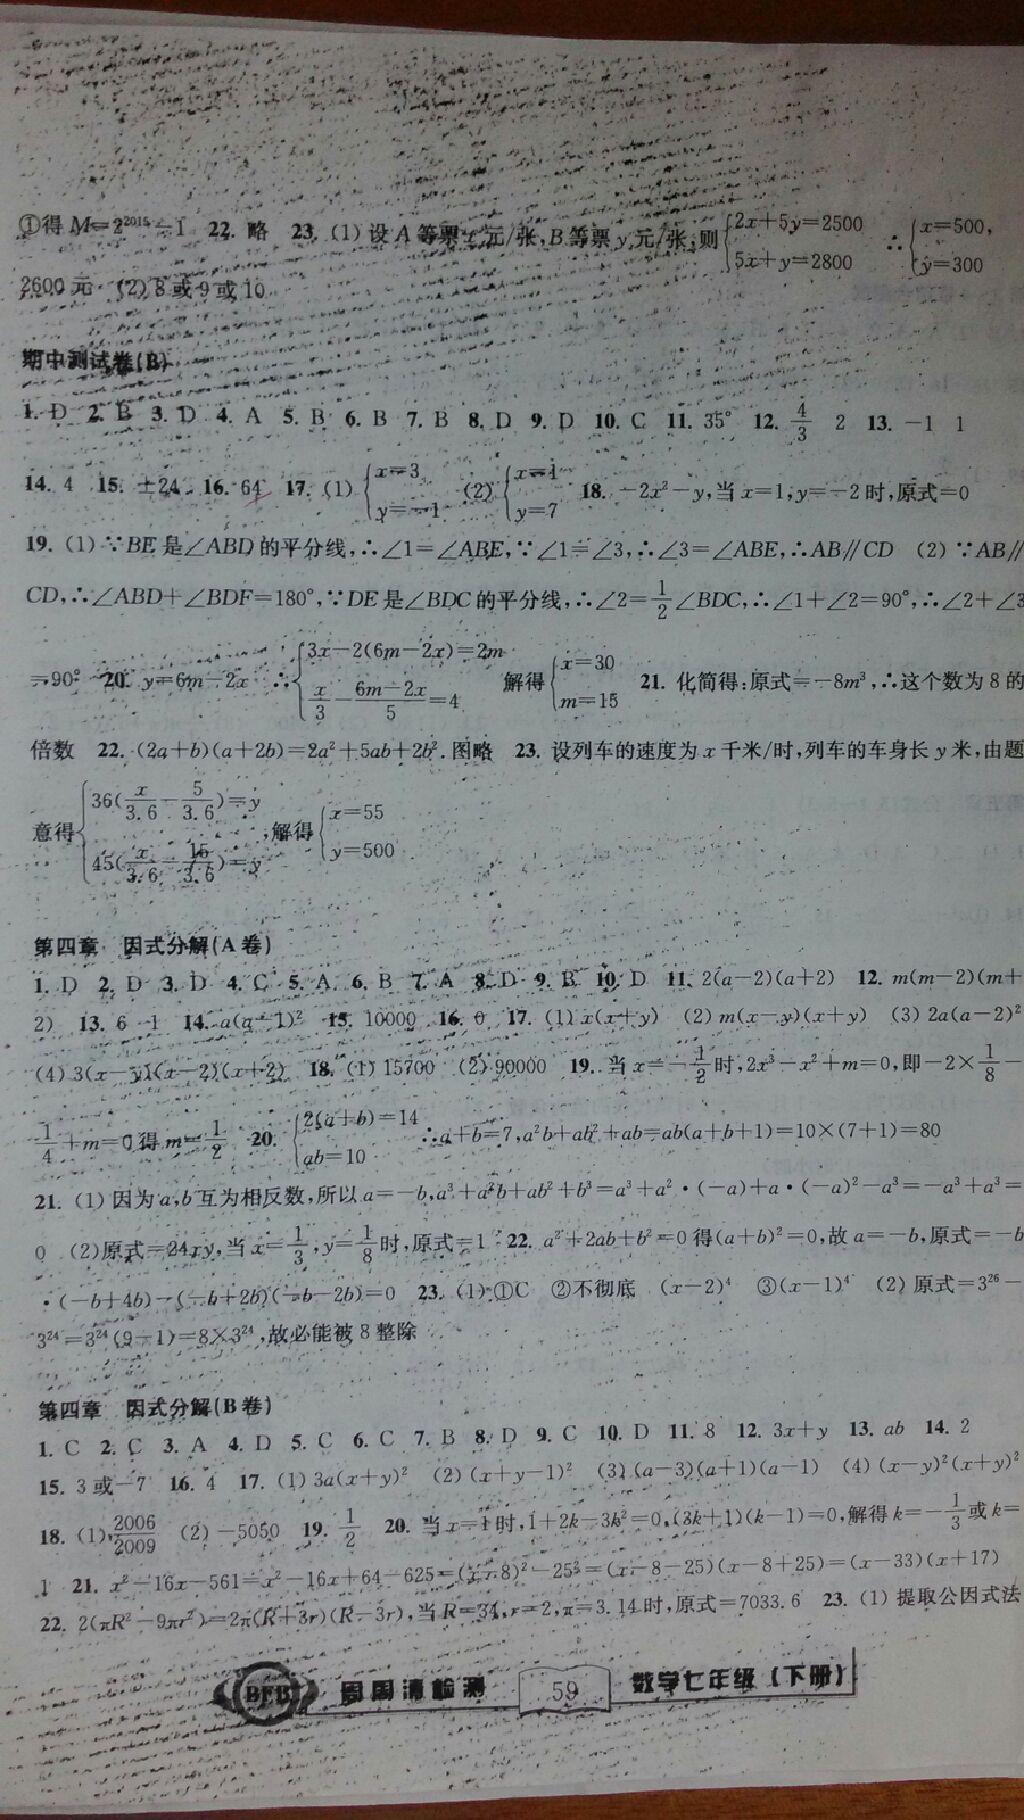 ①得 M=2²⁰¹⁵-1 22. 略 23. (1) 设 A 等票 x 元/张, B 等票 y 元/张, 则{2x+5y=2500 5x+y=2800 ∴{x=500, y=300
2600 元 (2) 8 或 9 或 10
期中测试卷(B)
1. D 2. B 3. D 4. A 5. B 6. B 7. B 8. D 9. D 10. C 11. 35° 12. 4/3 2 13. -1 1
14. 4 15. ±24 16. 64 17. (1){x=3 y=-1 (2){x=1 y=7 18. -2x²-y,当 x=1,y=-2 时,原式=0
19. (1) ∵BE 是∠ABD 的平分线,∴∠1=∠ABE,∵∠1=∠3,∴∠3=∠ABE,∴AB∥CD (2) ∵AB∥
CD,∴∠ABD+∠BDF=180°,∵DE 是∠BDC 的平分线,∴∠2=1/2∠BDC,∴∠1+∠2=90°,∴∠2+∠3
=90° 20. y=6m-2x ∴{3x-2(6m-2x)=2m x/3-(6m-2x)/5=4 解得{x=30 m=15 21. 化简得:原式=-8m³,∴这个数为 8 的
倍数 22. (2a+b)(a+2b)=2a²+5ab+2b².图略 23. 设列车的速度为 x 千米/时,列车的车身长 y 米,由题
意得{36(x/3.6-5/3.6)=y 45(x/3.6-15/3.6)=y ,解得{x=55 y=500
第四章 因式分解(A 卷)
1. D 2. D 3. D 4. C 5. A 6. B 7. A 8. D 9. B 10. D 11. 2(a-2)(a+2) 12. m(m-2)(m+
2) 13. 6 1 14. a(a-1)² 15. 10000 16. 0 17. (1) x(x+y) (2) m(x-y)(x+y) (3) 2a(a-2)²
(4) 3(x-y)(x-2)(x+2) 18. (1) 15700 (2) 90000 19. 当 x=-1/2时,2x³-x²+m=0,即-2×1/8-
1/4+m=0 得 m=1/2 20. {2(a+b)=14 ab=10 ∴a+b=7,a²b+ab²+ab=ab(a+b+1)=10×(7+1)=80
21. (1) 因为 a,b 互为相反数,所以 a=-b,a³+a²b+ab²+b³=a³+a²·(-a)+a·(-a)²-a³=-a³+a³=
0 (2)原式=24xy,当 x=1/3,y=1/8时,原式=1 22. a²+2ab+b²=0 得(a+b)²=0,故 a=-b,原式=-b
·(-b+4b)-(-b+2b)(-b-2b)=0 23. (1) ①C ②不彻底 (x-2)⁴ ③(x-1)⁴ (2) 原式=3²⁶-
3²⁴=3²⁴(9-1)=8×3²⁴,故必能被 8 整除
第四章 因式分解(B 卷)
1. C 2. C 3. A 4. D 5. C 6. C 7. B 8. D 9. C 10. D 11. 8 12. 3x+y 13. ab 14. 2
15. 3 或-7 16. 4 17. (1) 3a(x+y)² (2) (x+y-1)² (3) (a-3)(a+1)(a-1) (4) (x-y)²(x+y)²
18. (1) 2006/2009 (2) -5050 19. 1/2 20. 当 x=1 时,1+2k-3k²=0,(3k+1)(k-1)=0,解得 k=-1/3或 k=
1 21. x²-16x-561=x²-16x+64-625=(x-8)²-25²=(x-8-25)(x-8+25)=(x-33)(x+17)
22. 2(πR²-9πr²)=2π(R+3r)(R-3r),当 R=34,r=2,π=3.14时,原式=7033.6 23. (1) 提取公因式法
BFB 周周清检测 59 数学七年级(下册)